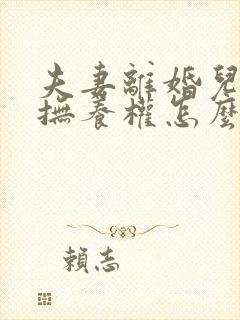 夫妻離婚兒
撫養權怎麼
賴志